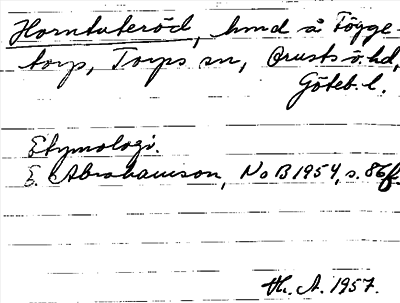 Horntuteröd, hmd å Föygge-
torp, Torps sn, Orusts ö. hd,
Göteb. l.
Etymologi.
E. Abrahamson, NoB 1954, s. 86f.
Th. A. 1957.